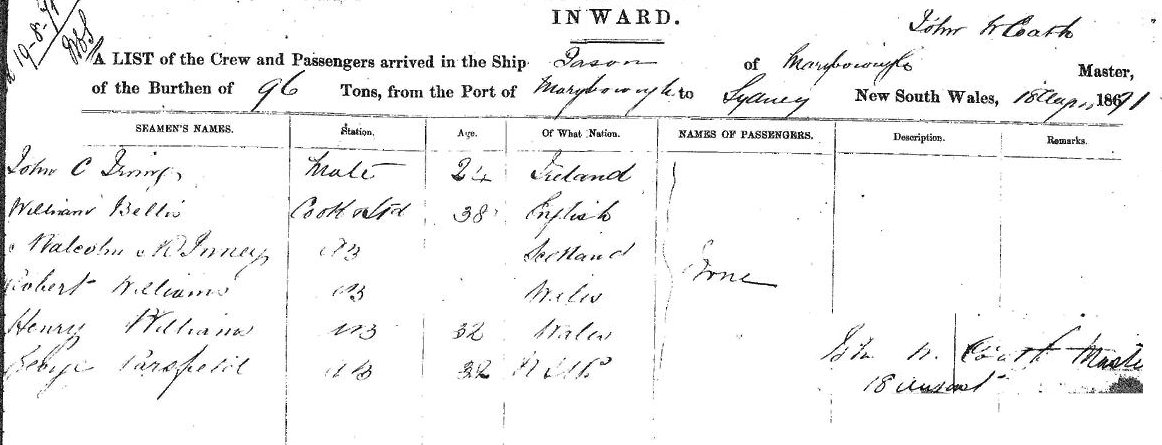 19-8-71
INWARD.
John W Coath
A LIST of the Crew and Passengers arrived in the Ship Jason of Maryborough Master,
of the Burthen of 96 Tons, from the Port of Maryborough to Sydney New South Wales, 18 1871
SEAMEN'S NAMES. Station. Age. Of What Nation. NAMES OF PASSENGERS. Description. Remarks.
John C Irving Mate 24 Ireland
William Bellis Cook & Std 38 English
Malcolm AB Scotland
None
Robert Williams AB Wales
Henry Williams AB 32 Wales
George AB 32
John W. Coath Master
18 August